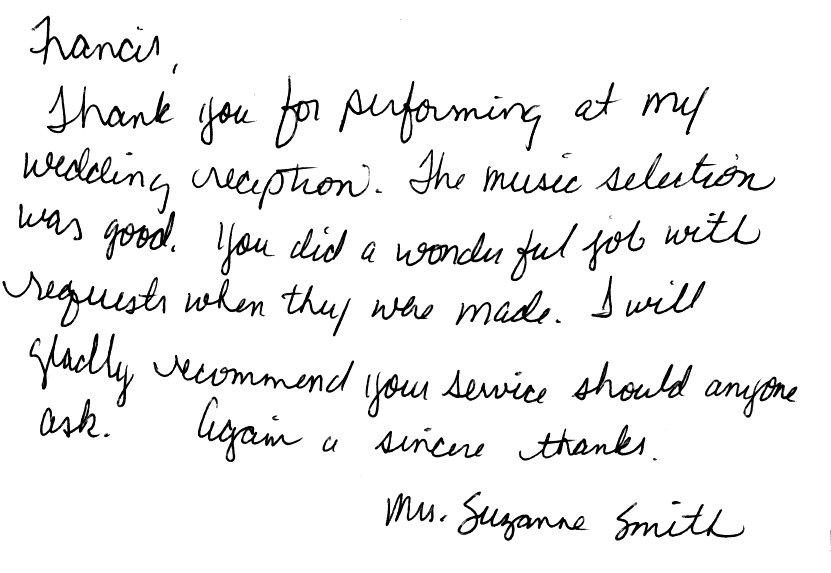 Francis,
Thank you for performing at my
wedding reception. The music selection
was good. You did a wonderful job with
requests when they were made. I will
gladly recommend your service should anyone
ask. Again a sincere thanks.
Mrs. Suzanne Smith